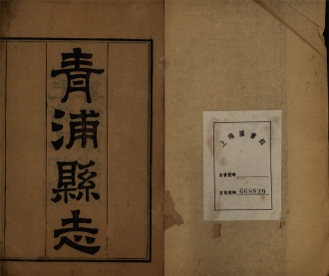 青浦縣志
上海圖書館
668839